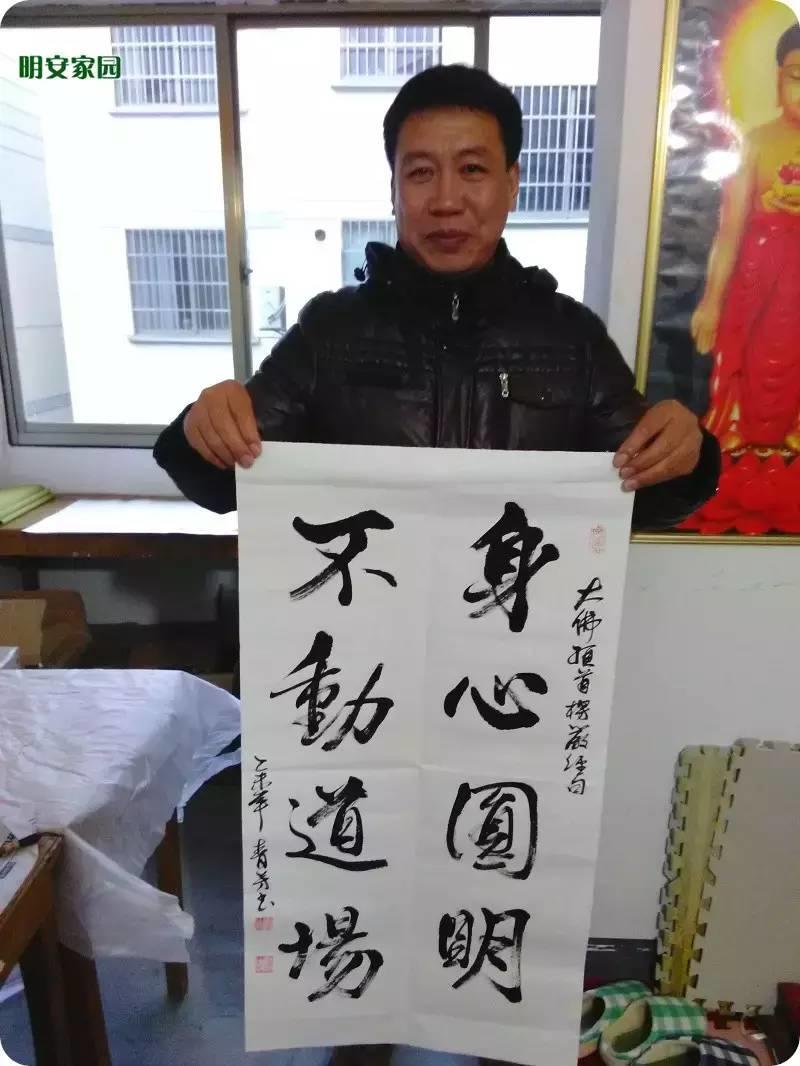 明安家园
大佛頂首楞嚴經句
身心圓明
不動道場
乙未年 青芳书